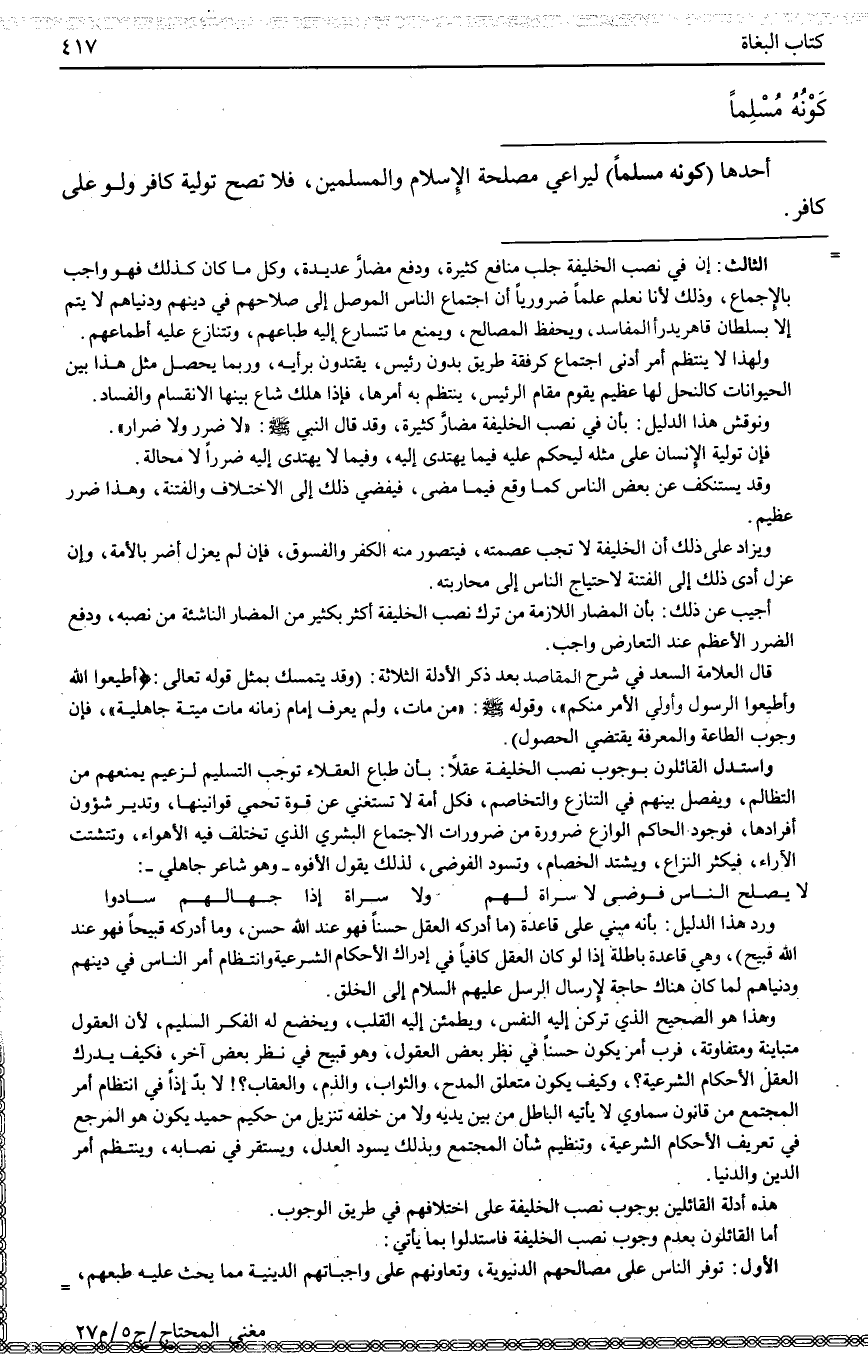 كتاب البغاة
٤١٧
كَوْنُهُ مُسْلِماً
أحدها (كونه مسلماً) ليراعي مصلحة الإسلام والمسلمين، فلا تصح تولية كافر ولو على
كافر.
=
الثالث: إن في نصب الخليفة جلب منافع كثيرة، ودفع مضارَّ عديدة، وكل ما كان كذلك فهو واجب
بالإجماع، وذلك لأنا نعلم علماً ضرورياً أن اجتماع الناس الموصل إلى صلاحهم في دينهم ودنياهم لا يتم
إلا بسلطان قاهريدرأ المفاسد، ويحفظ المصالح، ويمنع ما تتسارع إليه طباعهم، وتتنازع عليه أطماعهم.
ولهذا لا ينتظم أمر أدنى اجتماع كرفقة طريق بدون رئيس، يقتدون برأيه، وربما يحصل مثل هذا بين
الحيوانات كالنحل لها عظيم يقوم مقام الرئيس، ينتظم به أمرها، فإذا هلك شاع بينها الانقسام والفساد.
ونوقش هذا الدليل: بأن في نصب الخليفة مضارَّ كثيرة، وقد قال النبي ﷺ: «لا ضرر ولا ضرار».
فإن تولية الإنسان على مثله ليحكم عليه فيما يهتدى إليه، وفيما لا يهتدى إليه ضرراً لا محالة.
وقد يستنكف عن بعض الناس كما وقع فيما مضى، فيفضي ذلك إلى الاختلاف والفتنة، وهذا ضرر
عظيم.
ويزاد على ذلك أن الخليفة لا تجب عصمته، فيتصور منه الكفر والفسوق، فإن لم يعزل أضر بالأمة، وإن
عزل أدى ذلك إلى الفتنة لاحتياج الناس إلى محاربته.
أجيب عن ذلك: بأن المضار اللازمة من ترك نصب الخليفة أكثر بكثير من المضار الناشئة من نصبه، ودفع
الضرر الأعظم عند التعارض واجب.
قال العلامة السعد في شرح المقاصد بعد ذكر الأدلة الثلاثة: (وقد يتمسك بمثل قوله تعالى: ﴿أطيعوا الله
وأطيعوا الرسول وأولي الأمر منكم»، وقوله ﷺ: «من مات، ولم يعرف إمام زمانه مات ميتة جاهلية»، فإن
وجوب الطاعة والمعرفة يقتضي الحصول).
واستدل القائلون بوجوب نصب الخليفة عقلاً: بأن طباع العقلاء توجب التسليم لزعيم يمنعهم من
التظالم، ويفصل بينهم في التنازع والتخاصم، فكل أمة لا تستغني عن قوة تحمي قوانينها، وتدير شؤون
أفرادها، فوجود الحاكم الوازع ضرورة من ضرورات الاجتماع البشري الذي تختلف فيه الأهواء، وتتشتت
الآراء، فيكثر النزاع، ويشتد الخصام، وتسود الفوضى، لذلك يقول الأفوه ـ وهو شاعر جاهلي ـ:
لا يصلح الناس فوضى لا سراة لهم ولا سراة إذا جهالهم سادوا
ورد هذا الدليل: بأنه مبني على قاعدة (ما أدركه العقل حسناً فهو عند الله حسن، وما أدركه قبيحاً فهو عند
الله قبيح)، وهي قاعدة باطلة إذا لو كان العقل كافياً في إدراك الأحكام الشرعية وانتظام أمر الناس في دينهم
ودنياهم لما كان هناك حاجة لإرسال الرسل عليهم السلام إلى الخلق.
وهذا هو الصحيح الذي تركن إليه النفس، ويطمئن إليه القلب، ويخضع له الفكر السليم، لأن العقول
متباينة ومتفاوتة، فرب أمر يكون حسناً في نظر بعض العقول، وهو قبيح في نظر بعض آخر، فكيف يدرك
العقل الأحكام الشرعية؟، وكيف يكون متعلق المدح، والثواب، والذم، والعقاب؟! لا بدّ إذاً في انتظام أمر
المجتمع من قانون سماوي لا يأتيه الباطل من بين يديه ولا من خلفه تنزيل من حكيم حميد يكون هو المرجع
في تعريف الأحكام الشرعية، وتنظيم شأن المجتمع وبذلك يسود العدل، ويستقر في نصابه، وينتظم أمر
الدين والدنيا.
هذه أدلة القائلين بوجوب نصب الخليفة على اختلافهم في طريق الوجوب.
أما القائلون بعدم وجوب نصب الخليفة فاستدلوا بما يأتي:
الأول: توفر الناس على مصالحهم الدنيوية، وتعاونهم على واجباتهم الدينية مما يحث عليه طبعهم، =
مغني المحتاج/ج٥/م٢٧